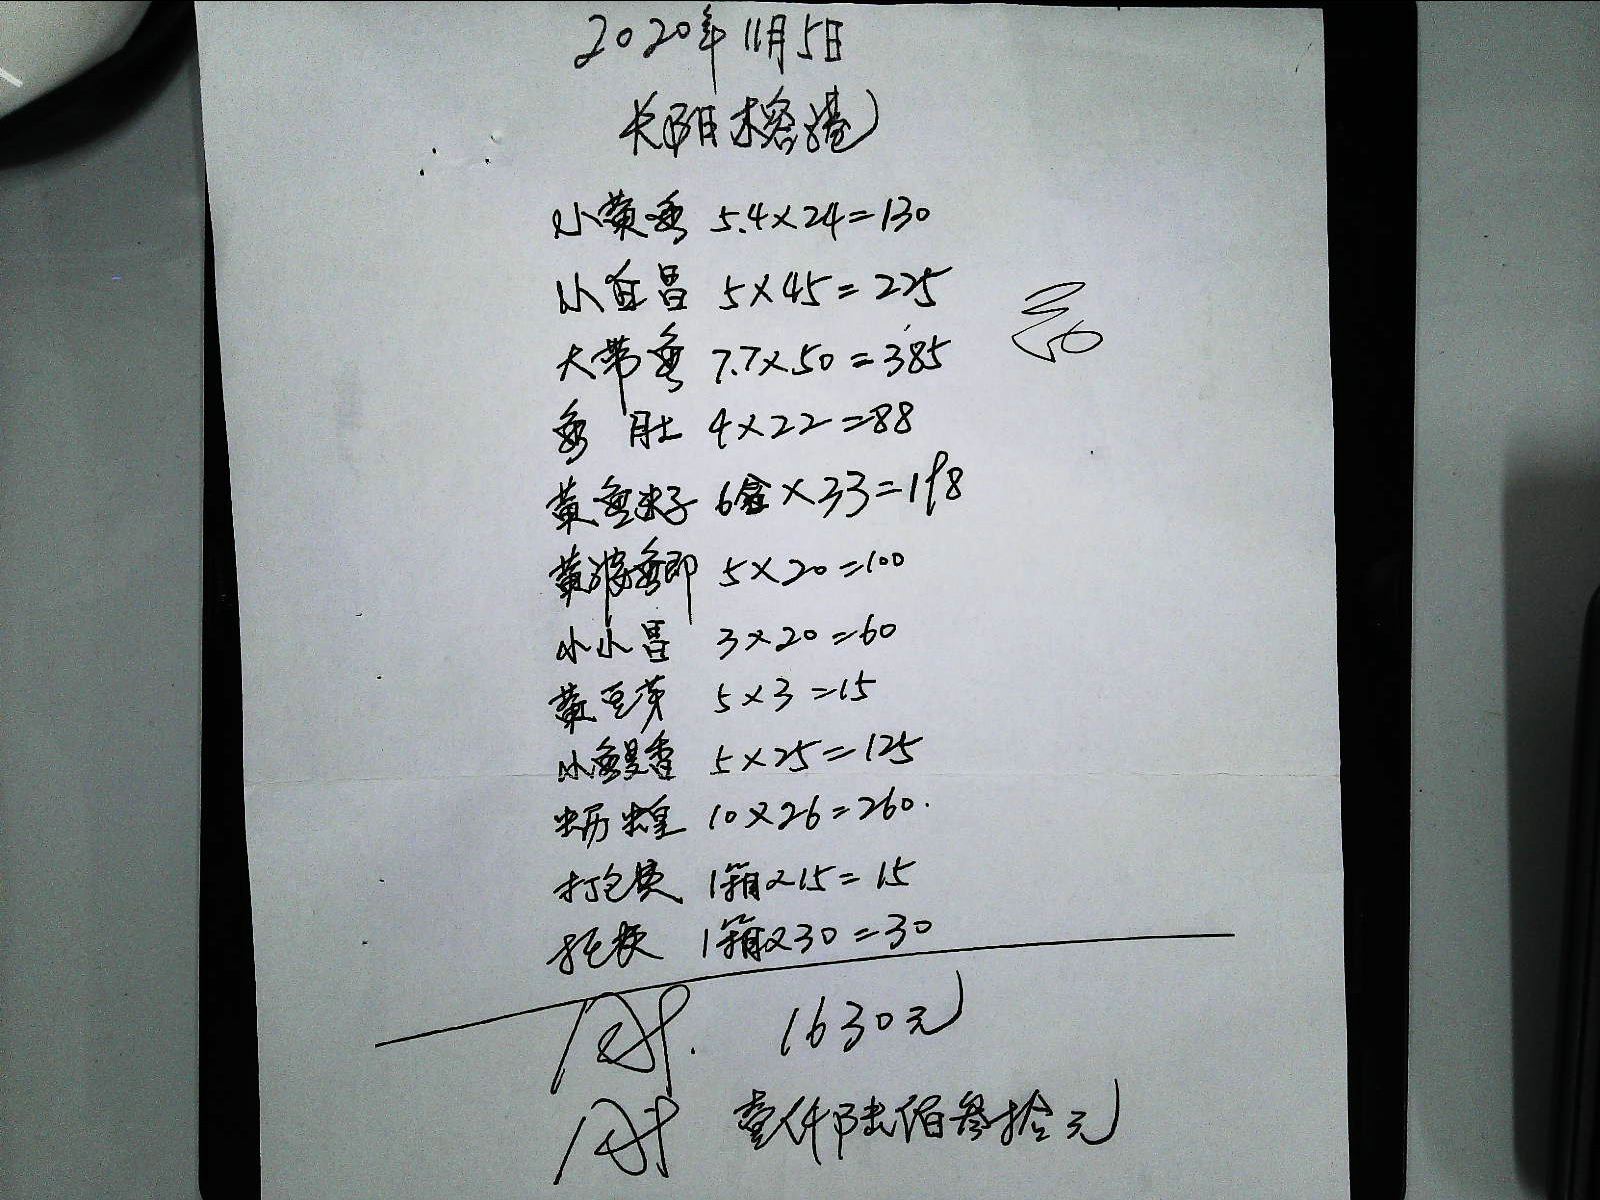 2020年11月5日
长阳木容港
小黄鱼 5.4×24=130
小白昌 5×45=225
大带鱼 7.7×50=385
鱼肚 4×22=88
黄鱼籽 6盒×33=198
黄 5×20=100
小小昌 3×20=60
黄豆芽 5×3=15
小 5×25=125
虫历虫皇 10×26=260.
打包费 1箱×15=15
1箱×30=30
1630元
壹仟陆佰叁拾元